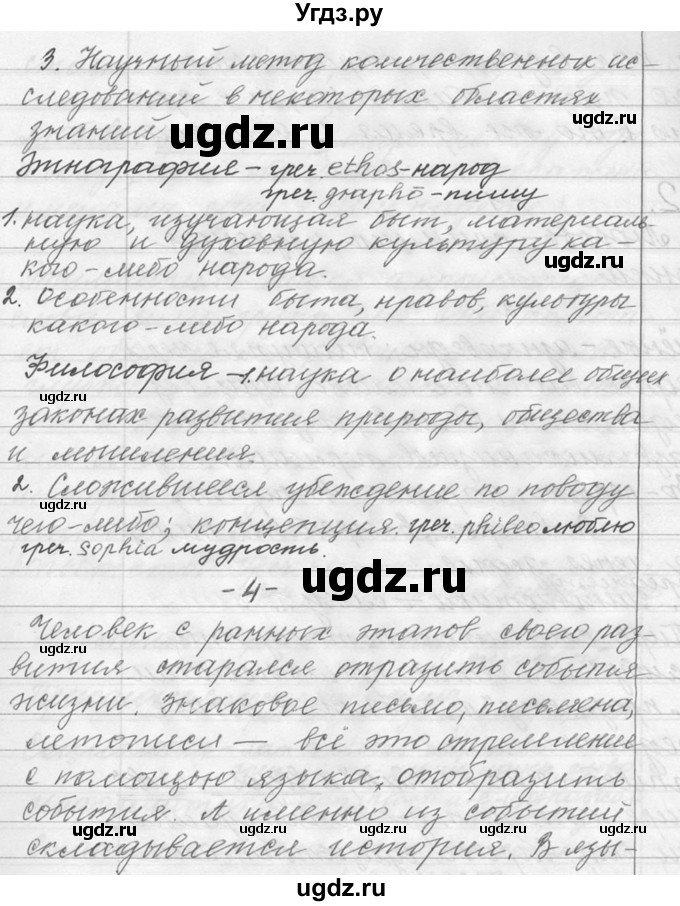 Угдз.ру
3. Научный метод количественных ис-
следований в некоторых областях
знаний
ugdz.ru
ugdz.ru
Этнография – греч. ethos-народ
греч. graphō-пишу
1. наука, изучающая быт, материаль-
ную и духовную культуру ка-
кого-либо народа.
ugdz.ru
2. Особенности быта, нравов, культуры
какого-либо народа.
ugdz.ru
Философия – 1. наука о наиболее общих
ugdz.ru
законах развития природы, общества
и мышления.
2. Сложившееся убеждение по поводу
чего-либо; концепция. греч. phileo люблю
греч. sophia мудрость.
ugdz.ru
-4-
Человек с ранних этапов своего раз-
ugdz.ru
вития старался отразить события
жизни. Знаковое письмо, письмена,
летописи – всё это стремление
с помощью языка, отобразить
события. А именно из событий
ugdz.ru ugdz.ru ugdz.ru ugdz.ru
складывается история. В язы-
ugdz.ru